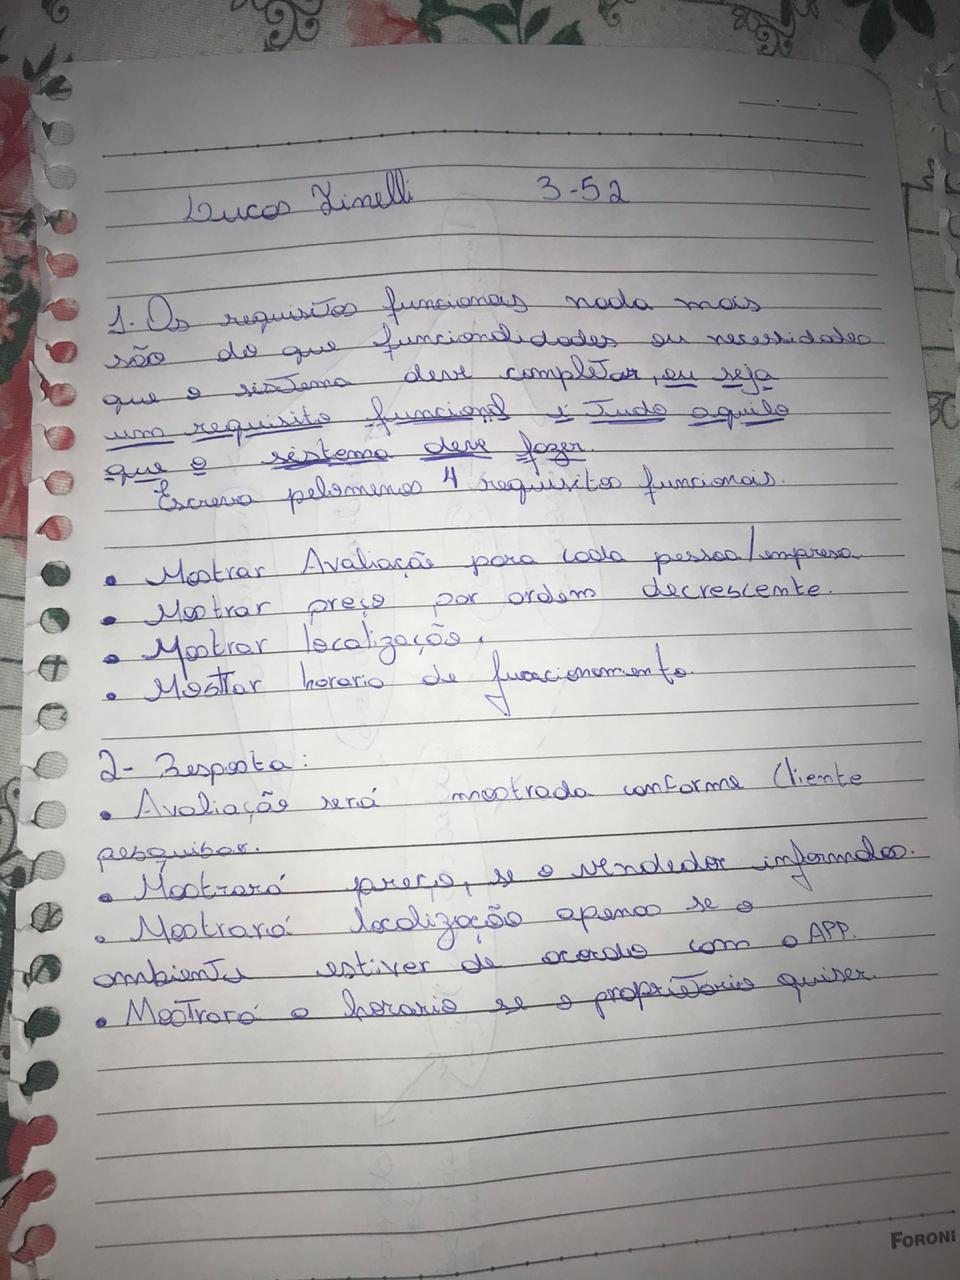 Lucas Zinelli 3-52
1. Os requisitos funcionais nada mais
são do que funcionalidades ou necessidades
que o sistema deve completar, ou seja
um requisito funcional é tudo aquilo
que o sistema deve fazer.
Escreva pelomenos 4 requisitos funcionais.
• Mostrar Avaliação para cada pessoa/empresa
• Mostrar preço por ordem decrescente.
• Mostrar localização.
• Mostrar horario de funcionamento.
2- Resposta:
• Avaliação será mostrada conforme Cliente
pesquisar.
• Mostrará preço, se o vendedor
• Mostrará localização apenas se o
ambiente estiver de acordo com o APP.
• Mostrará o horario se o proprietário quiser.
FORONI